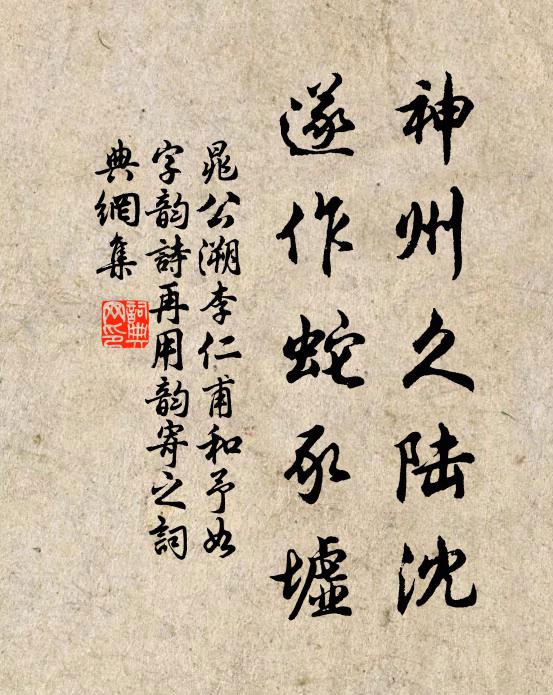 神州久陆沈
遂作蛇豕墟
晁公溯李仁甫和予如
字韵詩再用韵寄之詞
典網集
詞典網印